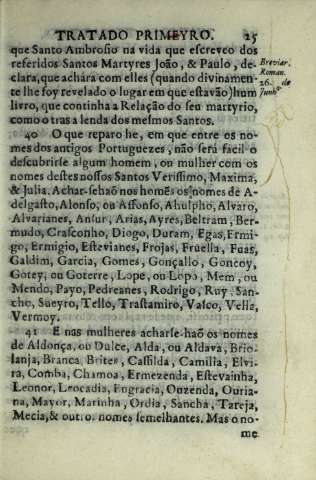 TRATADO PRIMEYRO. 25
que Santo Ambrosio na vida que escreveo dos
referidos Santos Martyres João, & Paulo, de-
clara, que achára com elles (quando divinamen-
te lhe foy revelado o lugar em que estavão) hum
livro, que continha a Relação do seu martyrio,
como o tras a lenda dos mesmos Santos.
Breviar.
Roman.
26. de
Junh.
40 O que reparo he, em que entre os no-
mes dos antigos Portuguezes, não será facil o
descubrirse algum homem, ou mulher com os
nomes destes nossos Santos Verissimo, Maxima,
& Julia. Achar-sehaõ nos homẽs os nomes de A-
delgasto, Alonso, ou Affonso, Ahulpho, Alvaro,
Alvarianes, Ansur, Arias, Ayres, Beltram, Ber-
mudo, Crasconho, Diogo, Duram, Egas, Ermi-
go, Ermigio, Estevianes, Frojas, Fruella, Fuas,
Galdim, Garcia, Gomes, Gonçallo, Goncoy,
Gotey, ou Goterre, Lope, ou Lopo, Mem, ou
Mendo, Payo, Pedreanes, Rodrigo, Ruy, San-
cho, Sueyro, Tello, Trastamiro, Vasco, Vella,
Vermoy.
41 E nas mulheres acharse-haõ os nomes
de Aldonça, ou Dulce, Alda, ou Aldava, Brio-
lanja, Branca, Brites, Cassilda, Camilla, Elvi-
ra, Comba, Chamoa, Ermezenda, Estevainha,
Leonor, Leocadia, Engracia, Ouzenda, Ouria-
na, Mayor, Marinha, Ordia, Sancha, Tareja,
Mecia, & outros nomes semelhantes. Mas o no-
me